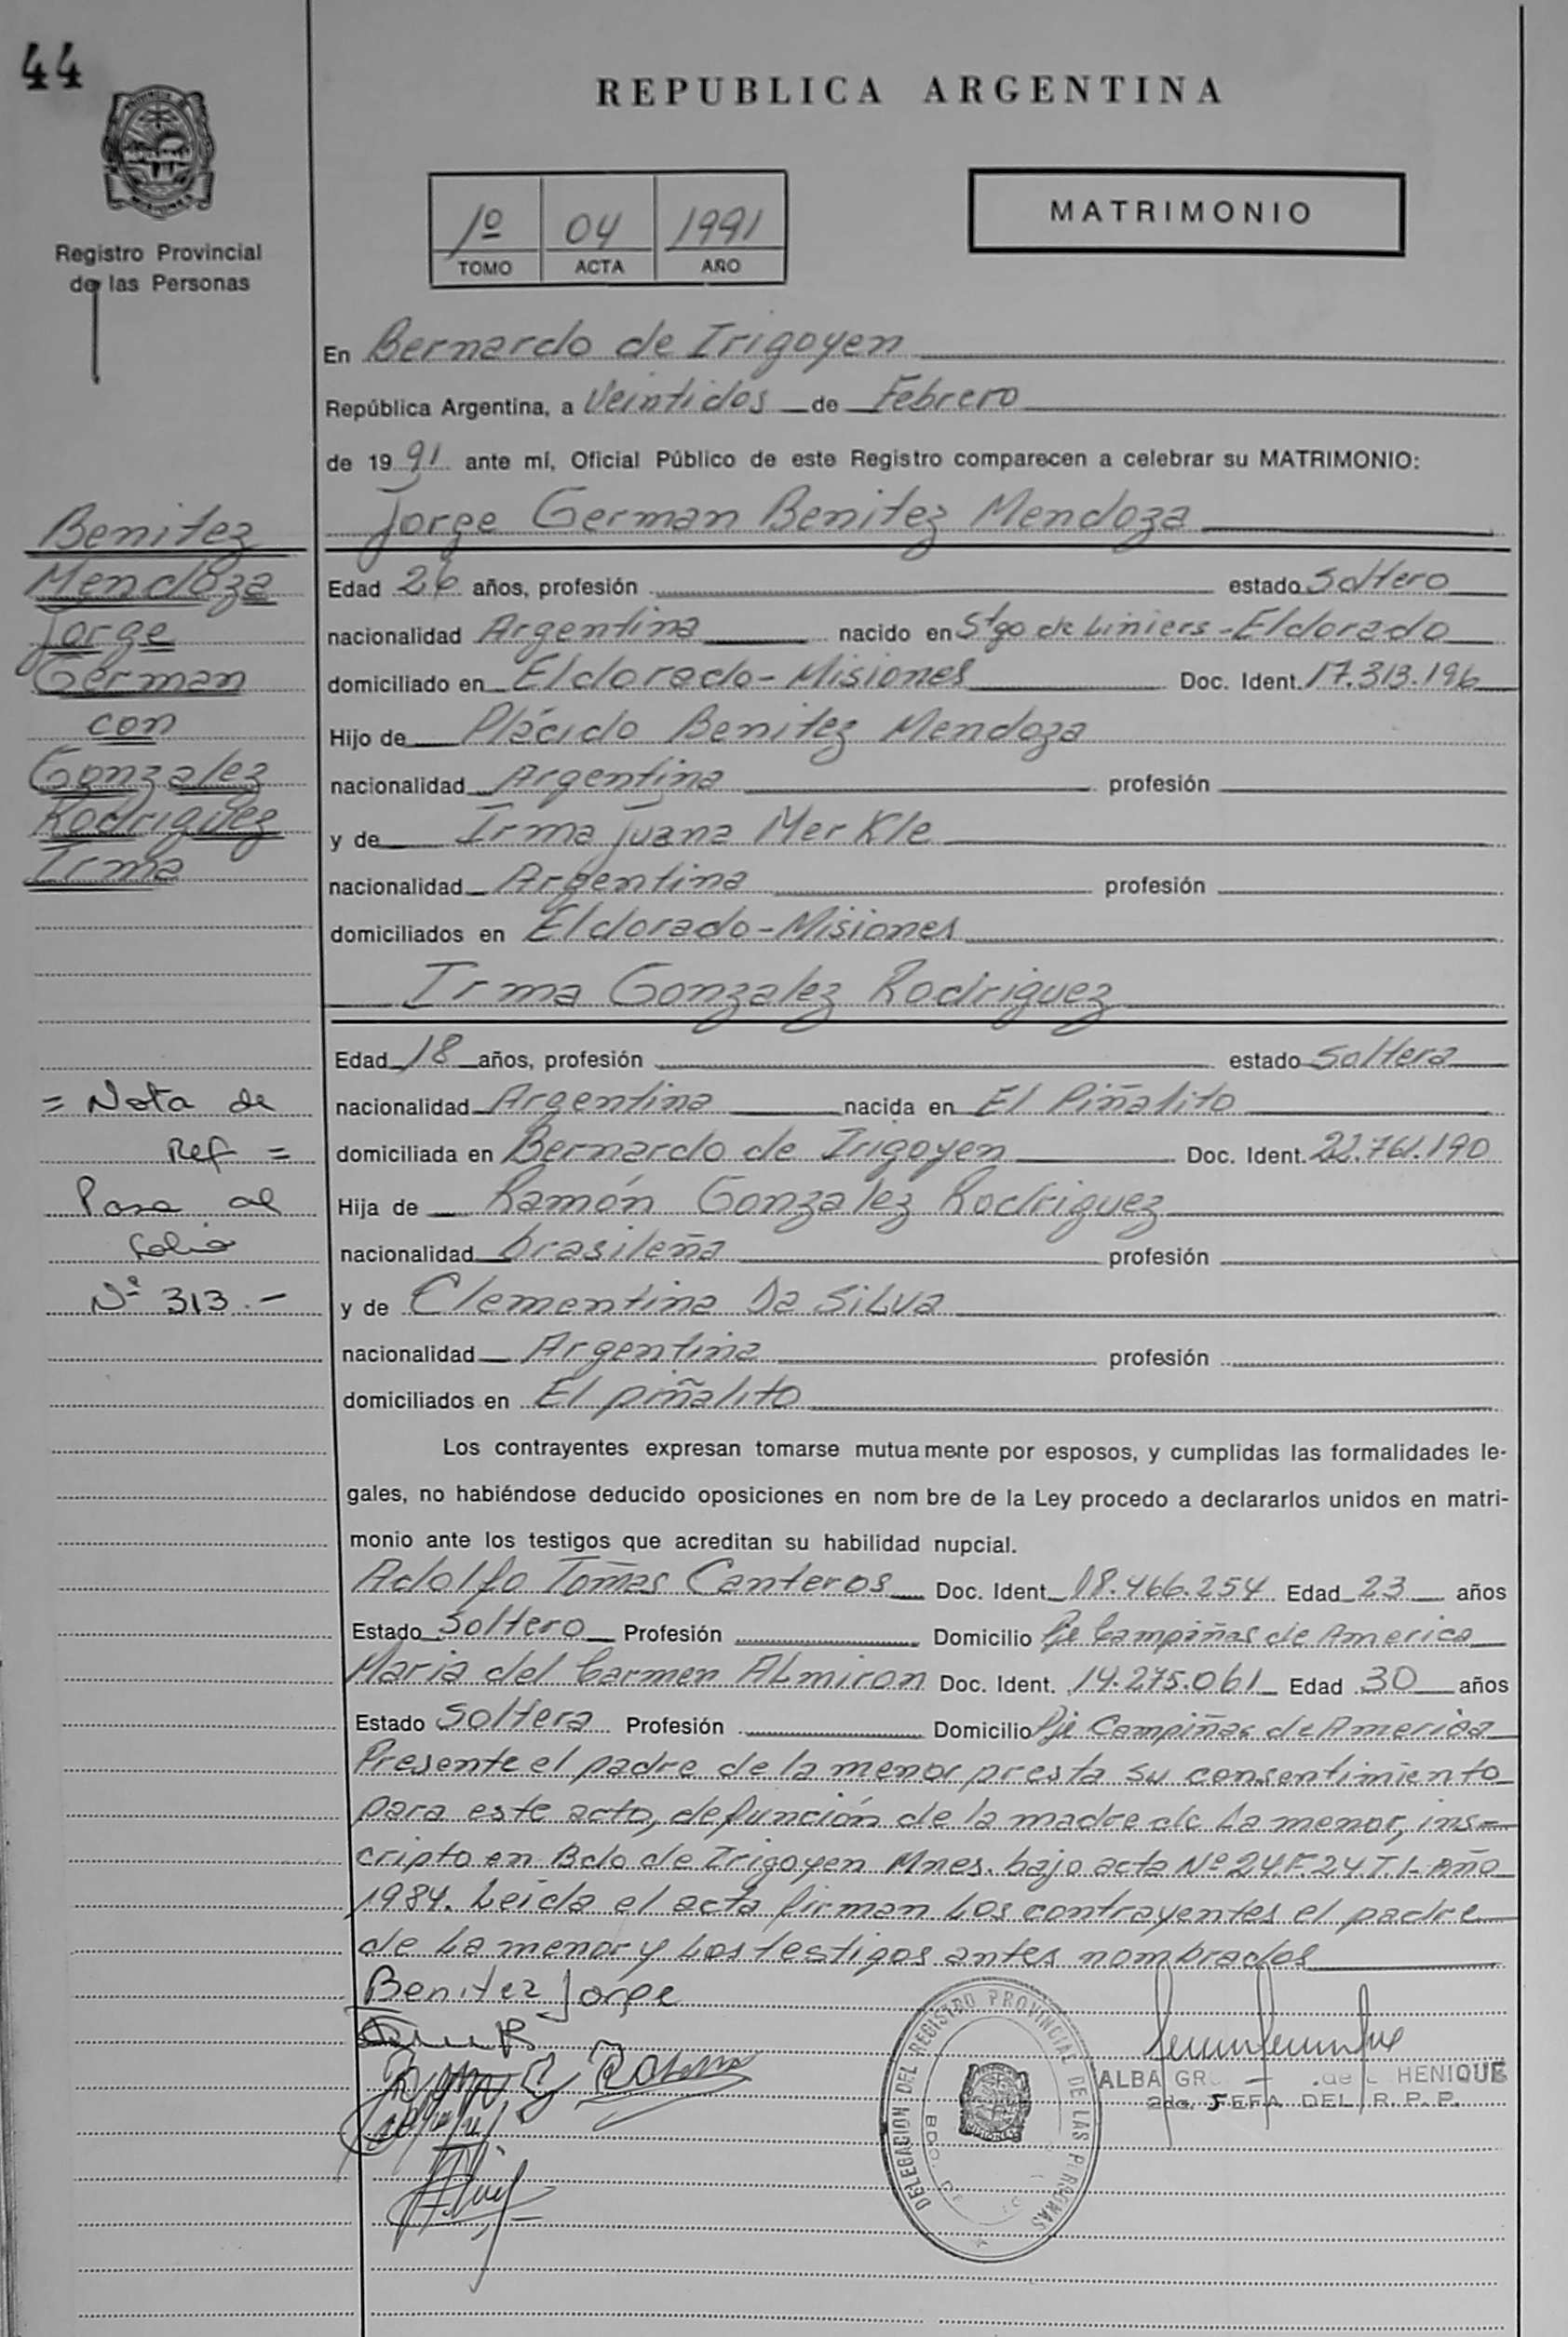 44
REPUBLICA ARGENTINA
PROVINCIA DE
MISIONES
Registro Provincial
de las Personas
1º 04 1991
TOMO ACTA AÑO
MATRIMONIO
En Bernardo de Irigoyen
República Argentina, a Veintidos de Febrero
de 1991 ante mí, Oficial Público de este Registro comparecen a celebrar su MATRIMONIO:
Jorge German Benitez Mendoza
Benitez
Mendoza
Jorge
German
con
Gonzalez
Rodriguez
Irma
Edad 26 años, profesión estado Soltero
nacionalidad Argentina nacido en Stgo de Liniers - Eldorado
domiciliado en Eldorado - Misiones Doc. Ident. 17.313.196
Hijo de Plácido Benitez Mendoza
nacionalidad Argentina profesión
y de Irma Juana Merkle
nacionalidad Argentina profesión
domiciliados en Eldorado - Misiones
Irma Gonzalez Rodriguez
Edad 18 años, profesión estado Soltera
nacionalidad Argentina nacida en El Piñalito
domiciliada en Bernardo de Irigoyen Doc. Ident. 22.761.190
Hija de Ramón Gonzalez Rodriguez
nacionalidad brasileña profesión
y de Clementina Da Silva
nacionalidad Argentina profesión
domiciliados en El piñalito
= Nota de
Ref =
Pasa al
folio
Nº 313.-
Los contrayentes expresan tomarse mutuamente por esposos, y cumplidas las formalidades le-
gales, no habiéndose deducido oposiciones en nom bre de la Ley procedo a declararlos unidos en matri-
monio ante los testigos que acreditan su habilidad nupcial.
Adolfo Tomas Canteros Doc. Ident. 18.466.254 Edad 23 años
Estado Soltero Profesión Domicilio Pje Campiñas de America
Maria del Carmen Almiron Doc. Ident. 14.275.061 Edad 30 años
Estado Soltera Profesión Domicilio Pje Campiñas de America
Presente el padre de la menor presta su consentimiento
para este acto, defunción de la madre de la menor, ins-
cripto en Bdo de Irigoyen Mnes. bajo acta Nº 24 F. 24 T. 1- Año
1984. Leida el acta firman los contrayentes el padre
de la menor y los testigos antes nombrados
Benitez Jorge
DELEGACION DEL REGISTRO PROVINCIAL DE LAS PERSONAS
BDO. DE
ALBA GR de HENIQUE
2da. JEFA DEL R. P. P.